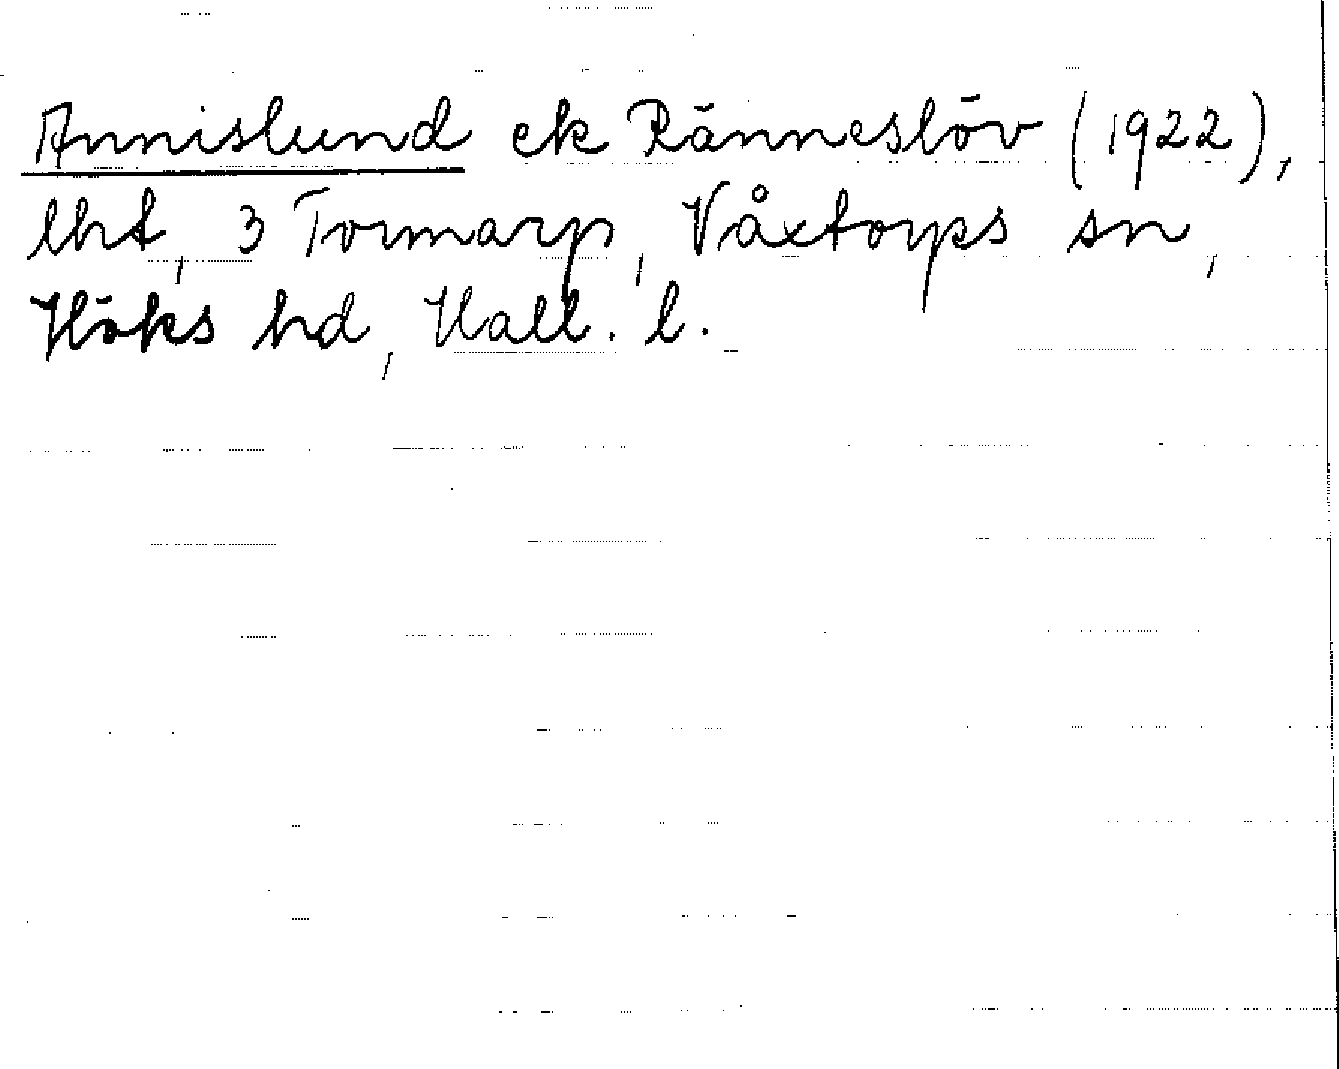 Annislund ek Ränneslöv (1922),
lht, 3 Tormarp, Våxtorps sn,
Höks hd, Hall. l.